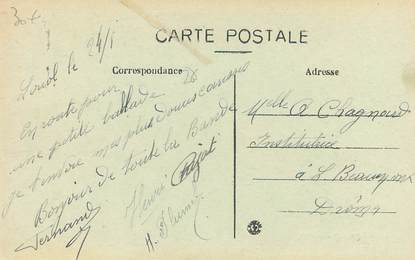 30 F
CARTE POSTALE
Correspondance
Adresse
Loriol le 24/1
26
En route pour
une petite ballade
je t'envoie mes plus doux
Bonjour de toute la Bande
Fernand
Henri
H.
Melle A Chagnard
Institutrice
à
Drôme